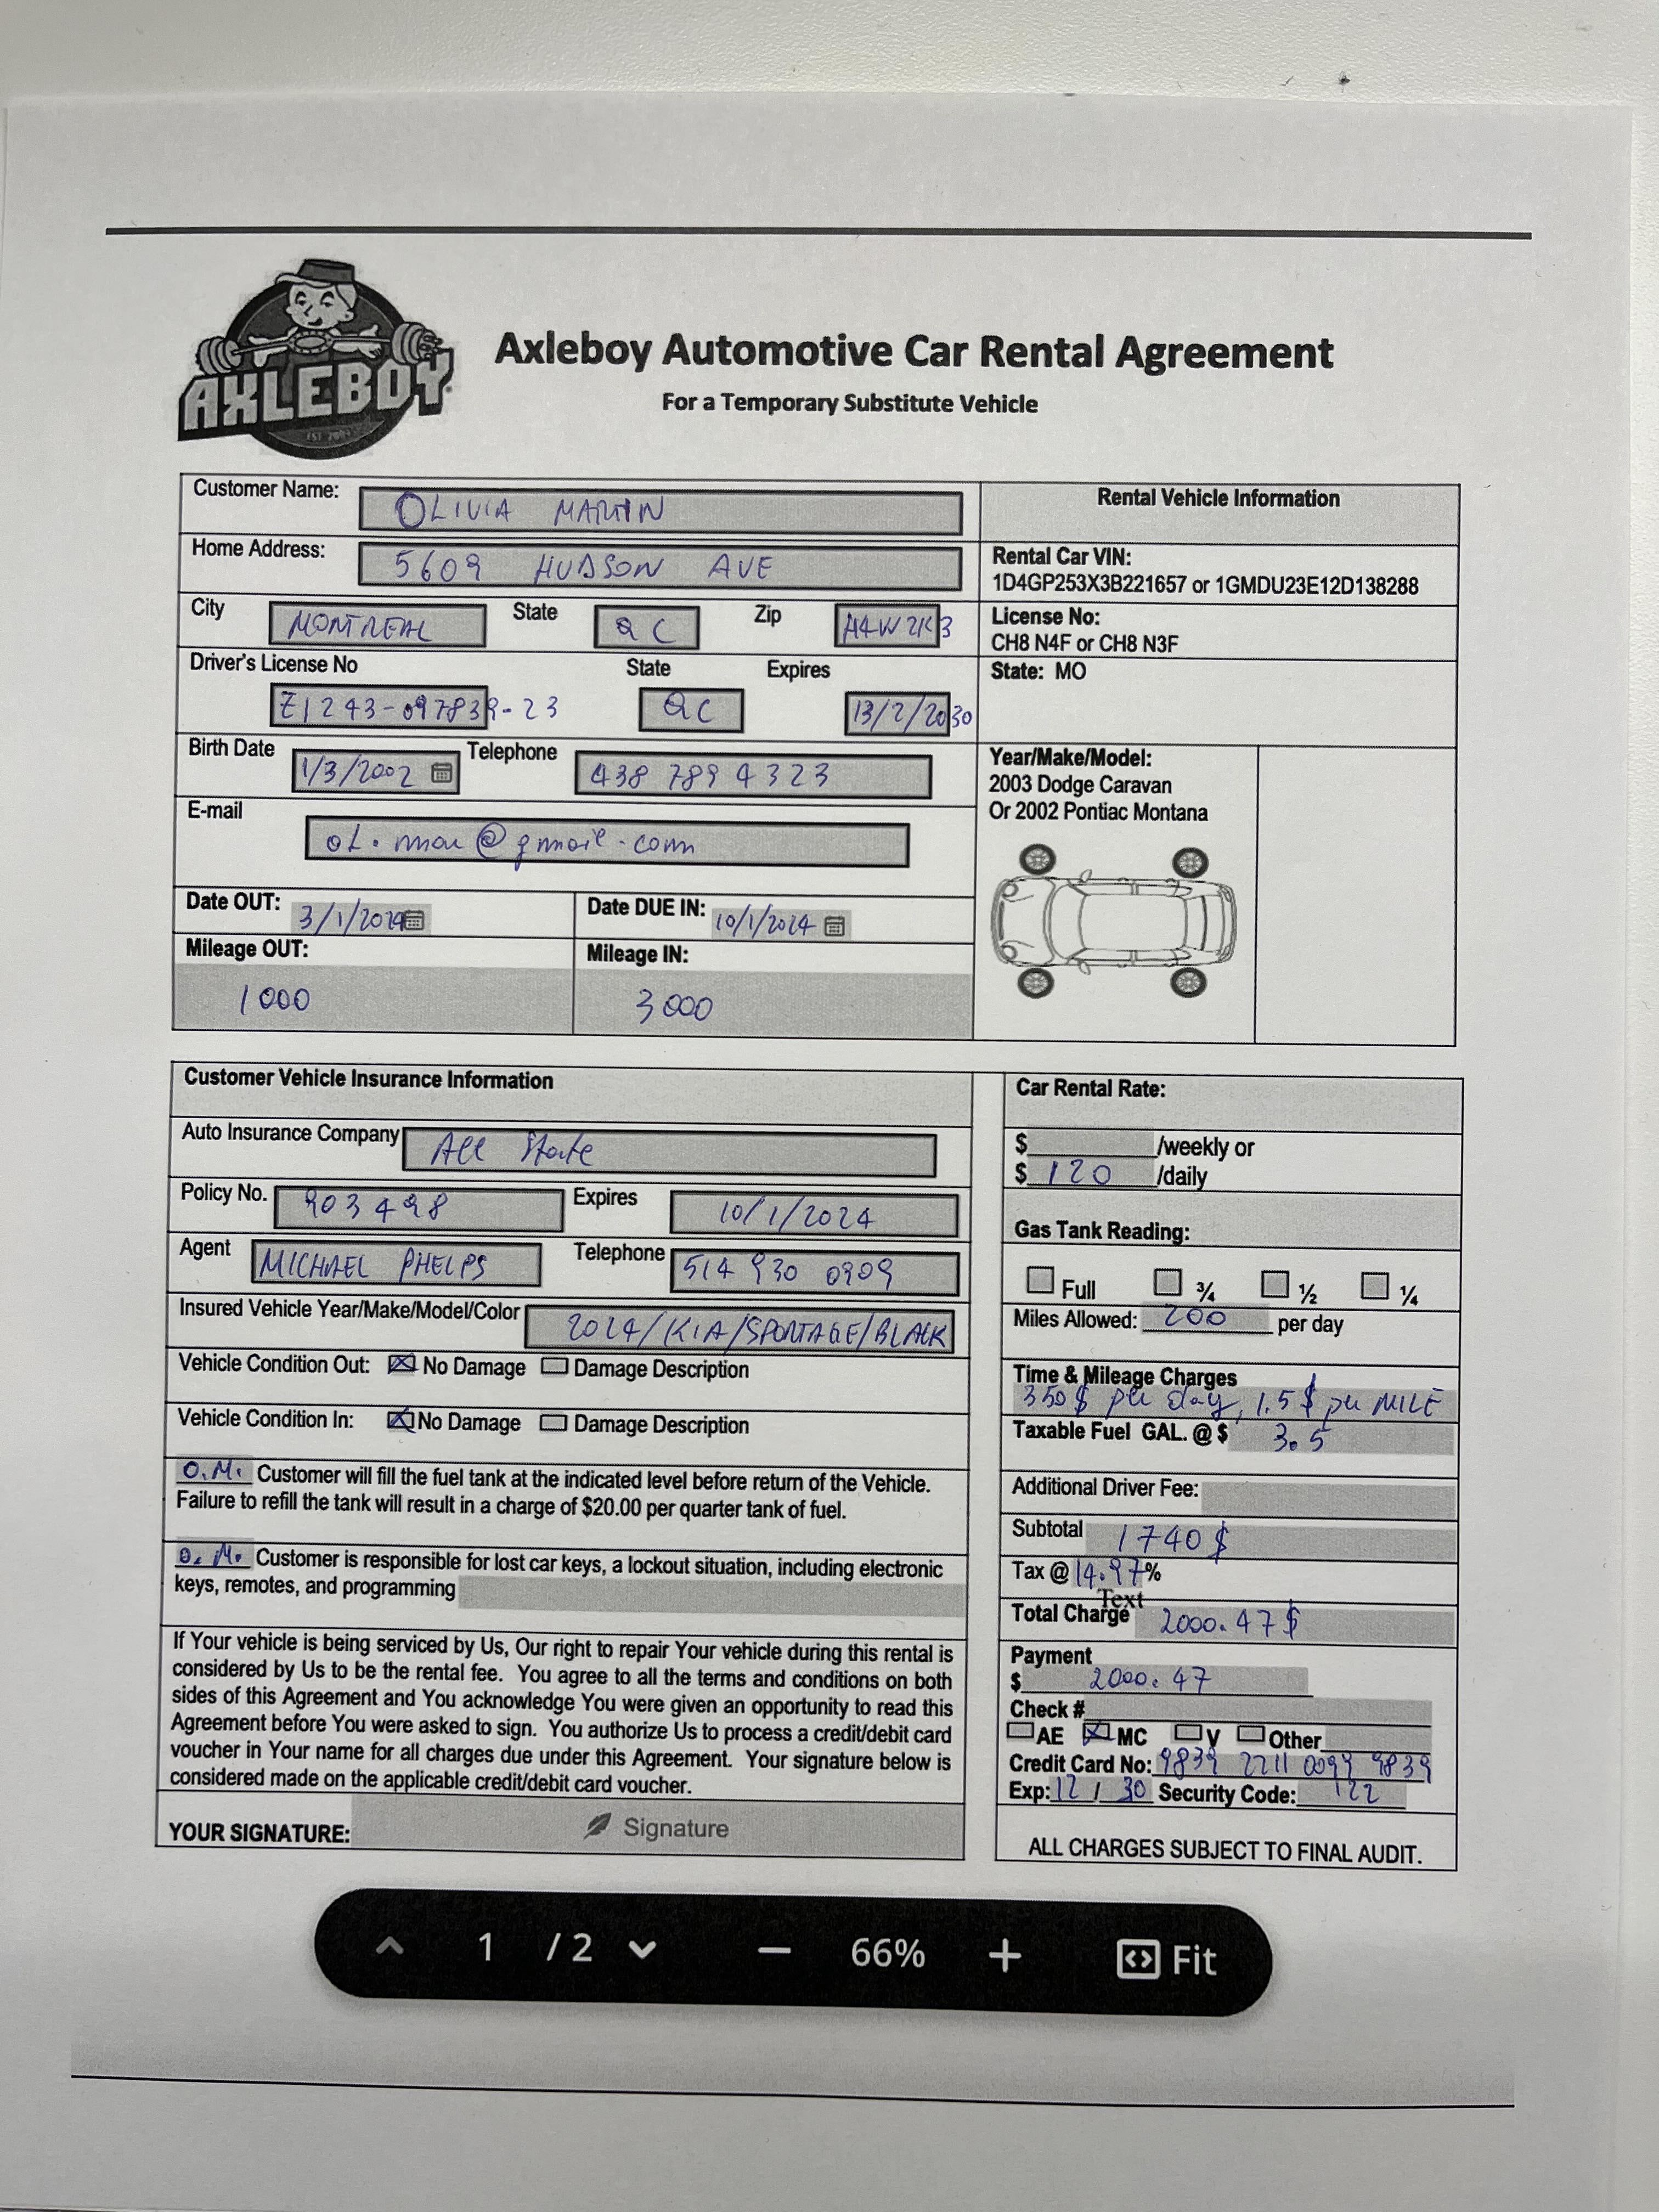 AXLEBOY
EST. 2009
Axleboy Automotive Car Rental Agreement
For a Temporary Substitute Vehicle
Customer Name: OLIVIA MARTIN
Home Address: 5609 HUDSON AVE
City MONTREAL State QC Zip H4W 2K3
Driver's License No State Expires
Z1243-097839-23 QC 13/2/2030
Birth Date 1/3/2002 Telephone 438 789 4323
E-mail
ol.mou@gmail.com
Date OUT: 3/1/2024 Date DUE IN: 10/1/2024
Mileage OUT: Mileage IN:
1000 3000
Rental Vehicle Information
Rental Car VIN:
1D4GP253X3B221657 or 1GMDU23E12D138288
License No:
CH8 N4F or CH8 N3F
State: MO
Year/Make/Model:
2003 Dodge Caravan
Or 2002 Pontiac Montana
Customer Vehicle Insurance Information
Auto Insurance Company All State
Policy No. 903498 Expires 10/1/2024
Agent MICHAEL PHELPS Telephone 514 930 0909
Insured Vehicle Year/Make/Model/Color 2024/KIA/SPORTAGE/BLACK
Vehicle Condition Out: No Damage Damage Description
Vehicle Condition In: No Damage Damage Description
O.M. Customer will fill the fuel tank at the indicated level before return of the Vehicle.
Failure to refill the tank will result in a charge of $20.00 per quarter tank of fuel.
O.M. Customer is responsible for lost car keys, a lockout situation, including electronic
keys, remotes, and programming
If Your vehicle is being serviced by Us, Our right to repair Your vehicle during this rental is
considered by Us to be the rental fee. You agree to all the terms and conditions on both
sides of this Agreement and You acknowledge You were given an opportunity to read this
Agreement before You were asked to sign. You authorize Us to process a credit/debit card
voucher in Your name for all charges due under this Agreement. Your signature below is
considered made on the applicable credit/debit card voucher.
YOUR SIGNATURE: Signature
Car Rental Rate:
$ /weekly or
$ 120 /daily
Gas Tank Reading:
Full ¾ ½ ¼
Miles Allowed: 200 per day
Time & Mileage Charges
350$ per day, 1.5$ per MILE
Taxable Fuel GAL. @ $ 3.5
Additional Driver Fee:
Subtotal 1740$
Tax @ 14.97%
Text
Total Charge 2000.47$
Payment
$ 2000.47
Check #
AE MC V Other
Credit Card No: 9839 2211 0099 9839
Exp: 12 / 30 Security Code: 122
ALL CHARGES SUBJECT TO FINAL AUDIT.
1 / 2 66% Fit